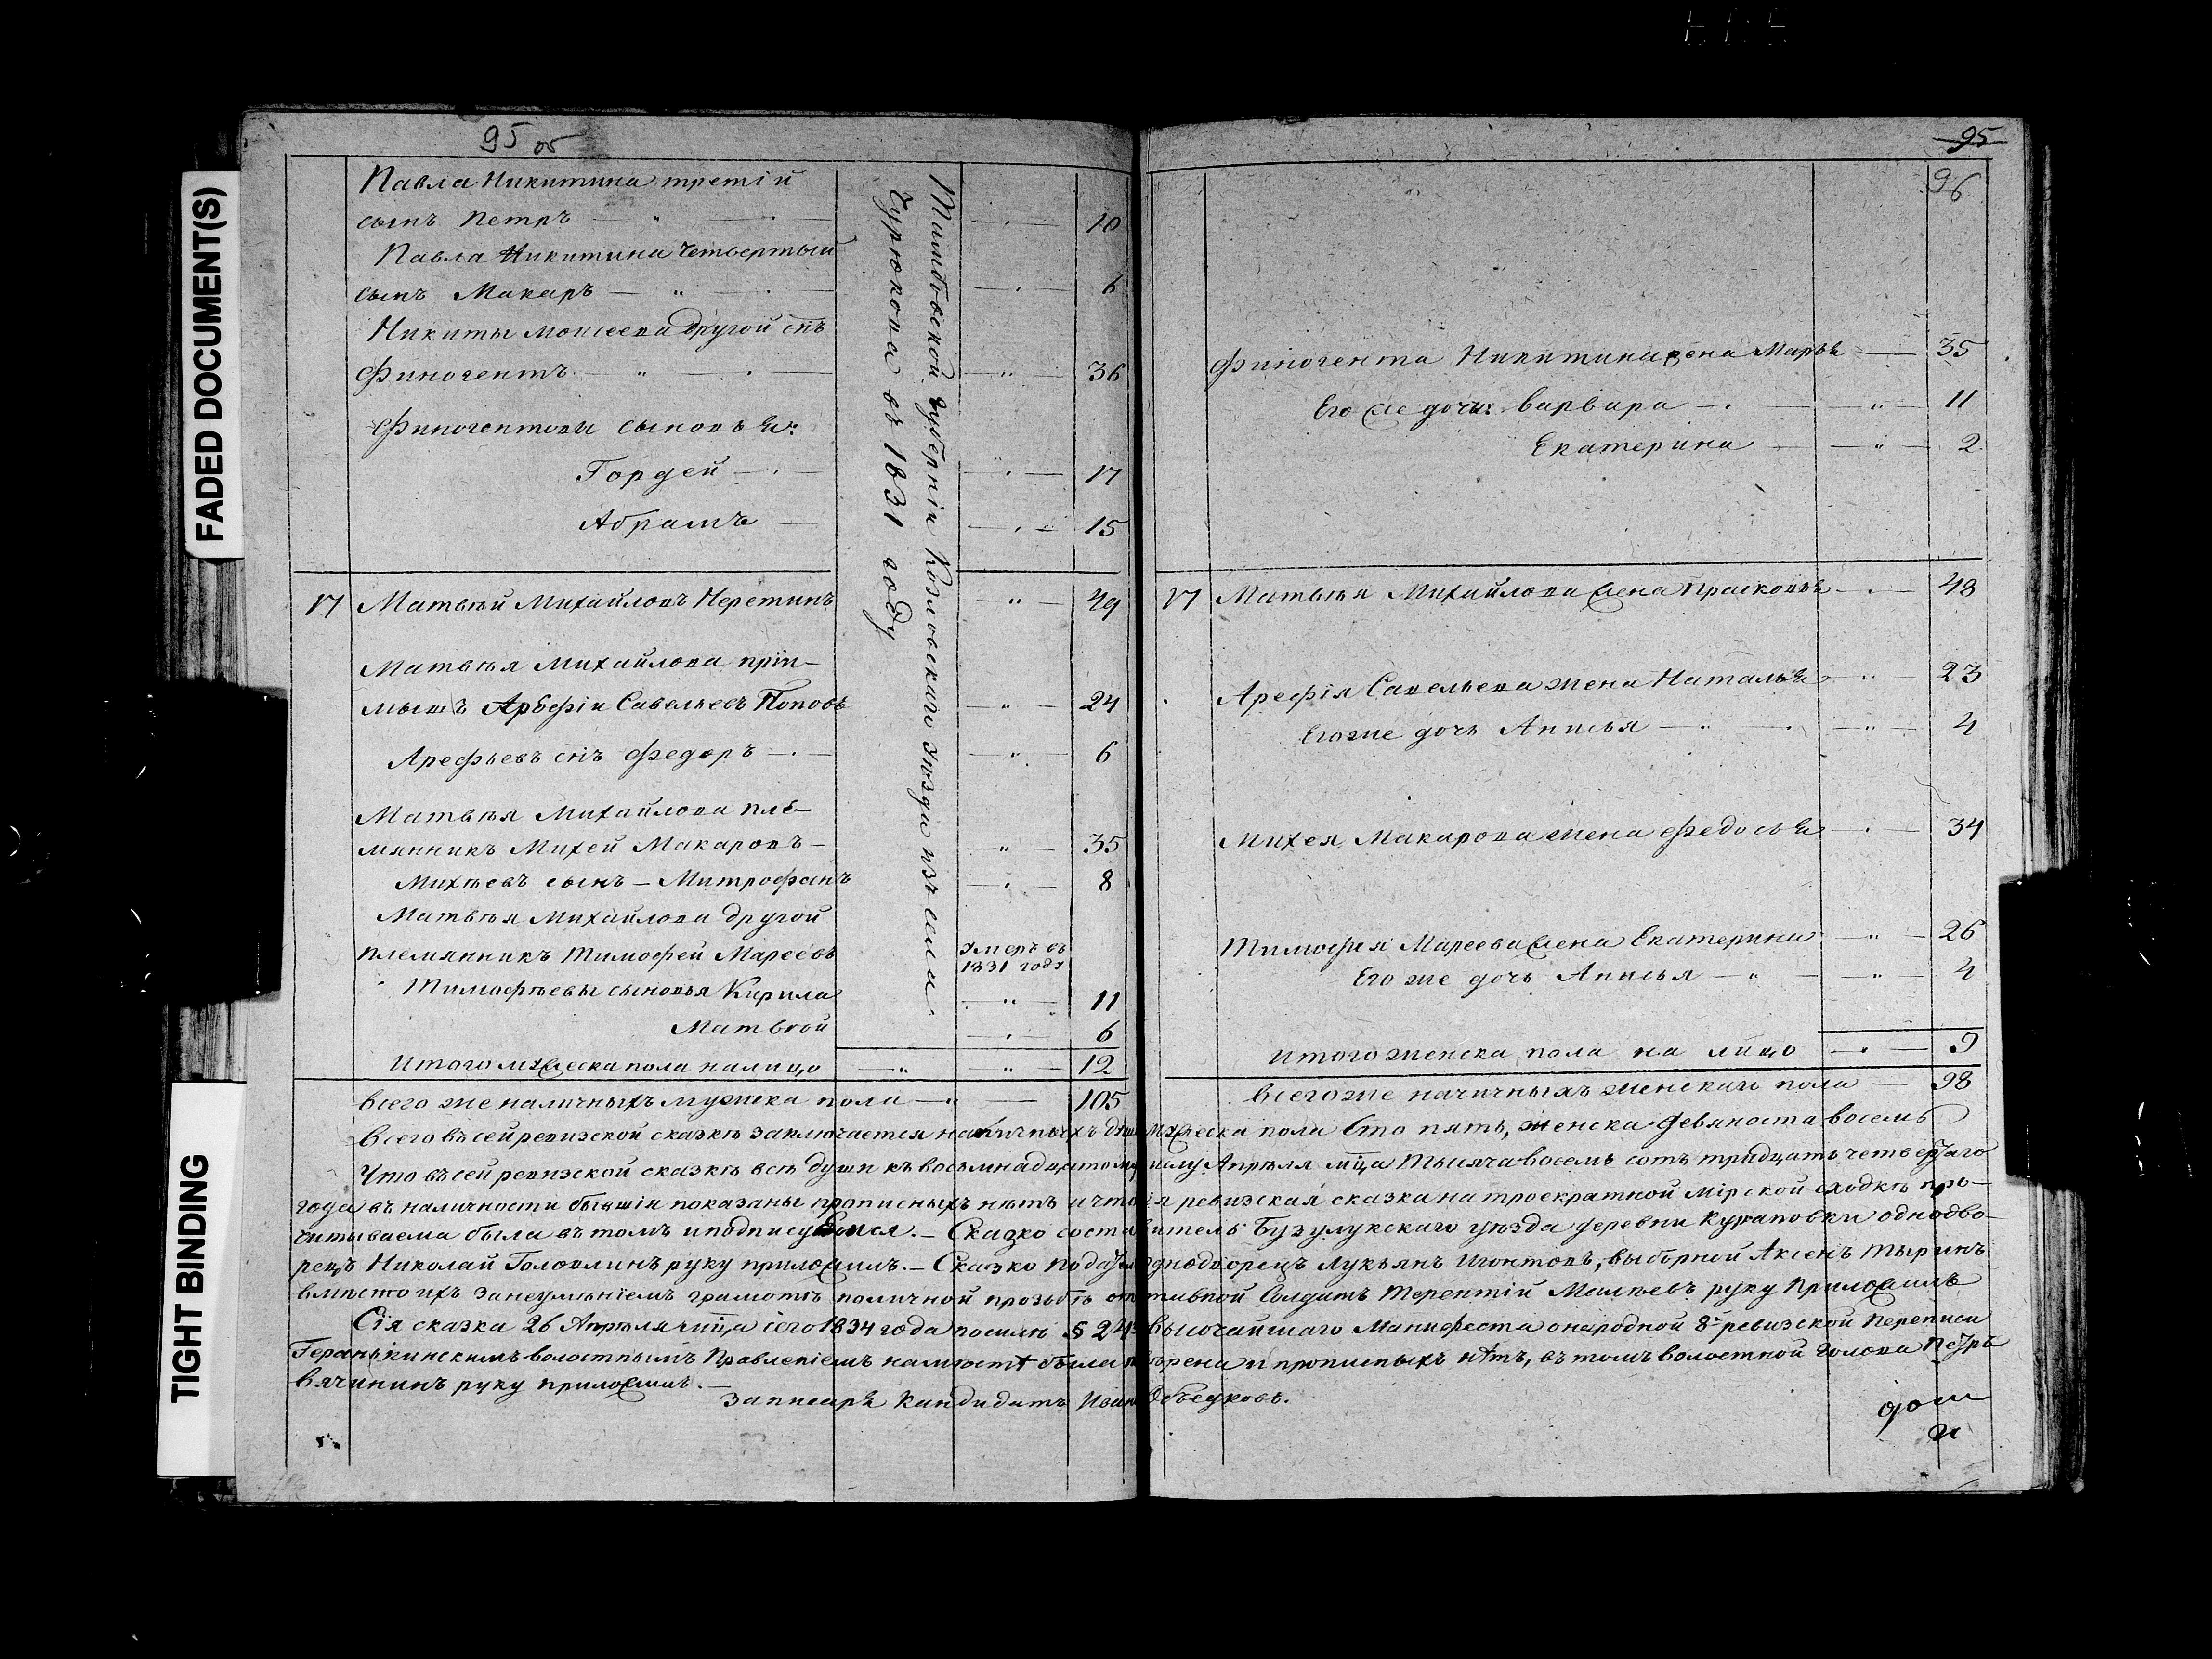 FADED DOCUMENT(S)
TIGHT BINDING
95 об
Павла Никитина третiй
сынъ Петръ — „ — . — 10
Павла Никитина четвертый
сынъ Макаръ — „ — . — 6
Никиты Моисеева другой снъ
Финогентъ — „ — . — 36
Финогентовы сыновья:
Гордей — . — 17
Абрамъ — . — 15
Тамбовской губернiи Козловскаго уезда изъ села
Сурюкова въ 1831 году
17 Матвѣй Михайловъ Неретинъ — „ — 49
Матвѣя Михайлова прiи-
мышъ Арефiй Савельевъ Поповъ — „ — 24
Арефьевъ снъ Федоръ — . — 6
Матвѣя Михайлова пле-
мянникъ Михей Макаровъ — „ — 35
Михѣевъ сынъ — Митрофанъ — . — 8
Матвѣя Михайлова другой
племянникъ Тимофей Мареевъ умеръ въ
1831 годy
Тимофѣевы сыновья Кирила — „ — 11
Матвѣй — . — 6
Итого мужеска пола налицо — „ — 12
Всего же наличныхъ мужска пола — „ — 105
95
96
Финогента Никитина жена Марья — 35
Его же дочи: Варвара — . — „ — 11
Екатерина — „ — 2
17 Матвѣя Михайлова жена Прасковья — . — 48
Арефiя Савельева жена Наталья — „ 23
Егоже дочь Анисья — „ — . — „ — 4
Михея Макарова жена Федосья — . — 34
Тимофея Мареева жена Екатерина — „ — 26
Его же дочь Анисья — „ — „ — 4
Итого женска пола на лицо — . — 9
Всегоже начичныхъ женскаго пола — 98
Всего въ сей ревизской сказкѣ заключается наличныхъ душъ мужеска пола Сто пять, женска девяноста восемь
Что въ сей ревизской сказкѣ всѣ души къ восьмнадцатому числу Апрѣля мца тысяча восемь сотъ тридцать четвертаго
года въ наличности бывшiи показаны прописныхъ нѣтъ и что сiя ревизская сказка на троекратной мiрской сходкѣ про-
читываема была въ томъ и подписуемся. — Сказко составитель Бузулукскаго уѣзда деревни однодво-
рецъ Николай Головлинъ руку приложилъ. — Сказко податели однодворецъ Лукьянъ Игонтовъ, выборной Аксенъ Тыринъ
вмѣсто ихъ занеумѣнiемъ грамотѣ поличной прозьбѣ отставной Солдатъ Терентiй Малѣевъ руку приложилъ
Сiя сказка 26 Апрѣля мца сего 1834 года посилѣ § 24 высочайшаго Манифеста о народной 8й ревизской переписи
Геранькинскимъ волостнымъ Правленiемъ намѣстѣ была повѣрена и прописныхъ нѣтъ, въ томъ волостной голова Петръ
Вячининъ руку приложилъ. —
За писаря Кандидатъ Иванъ Объедковъ.